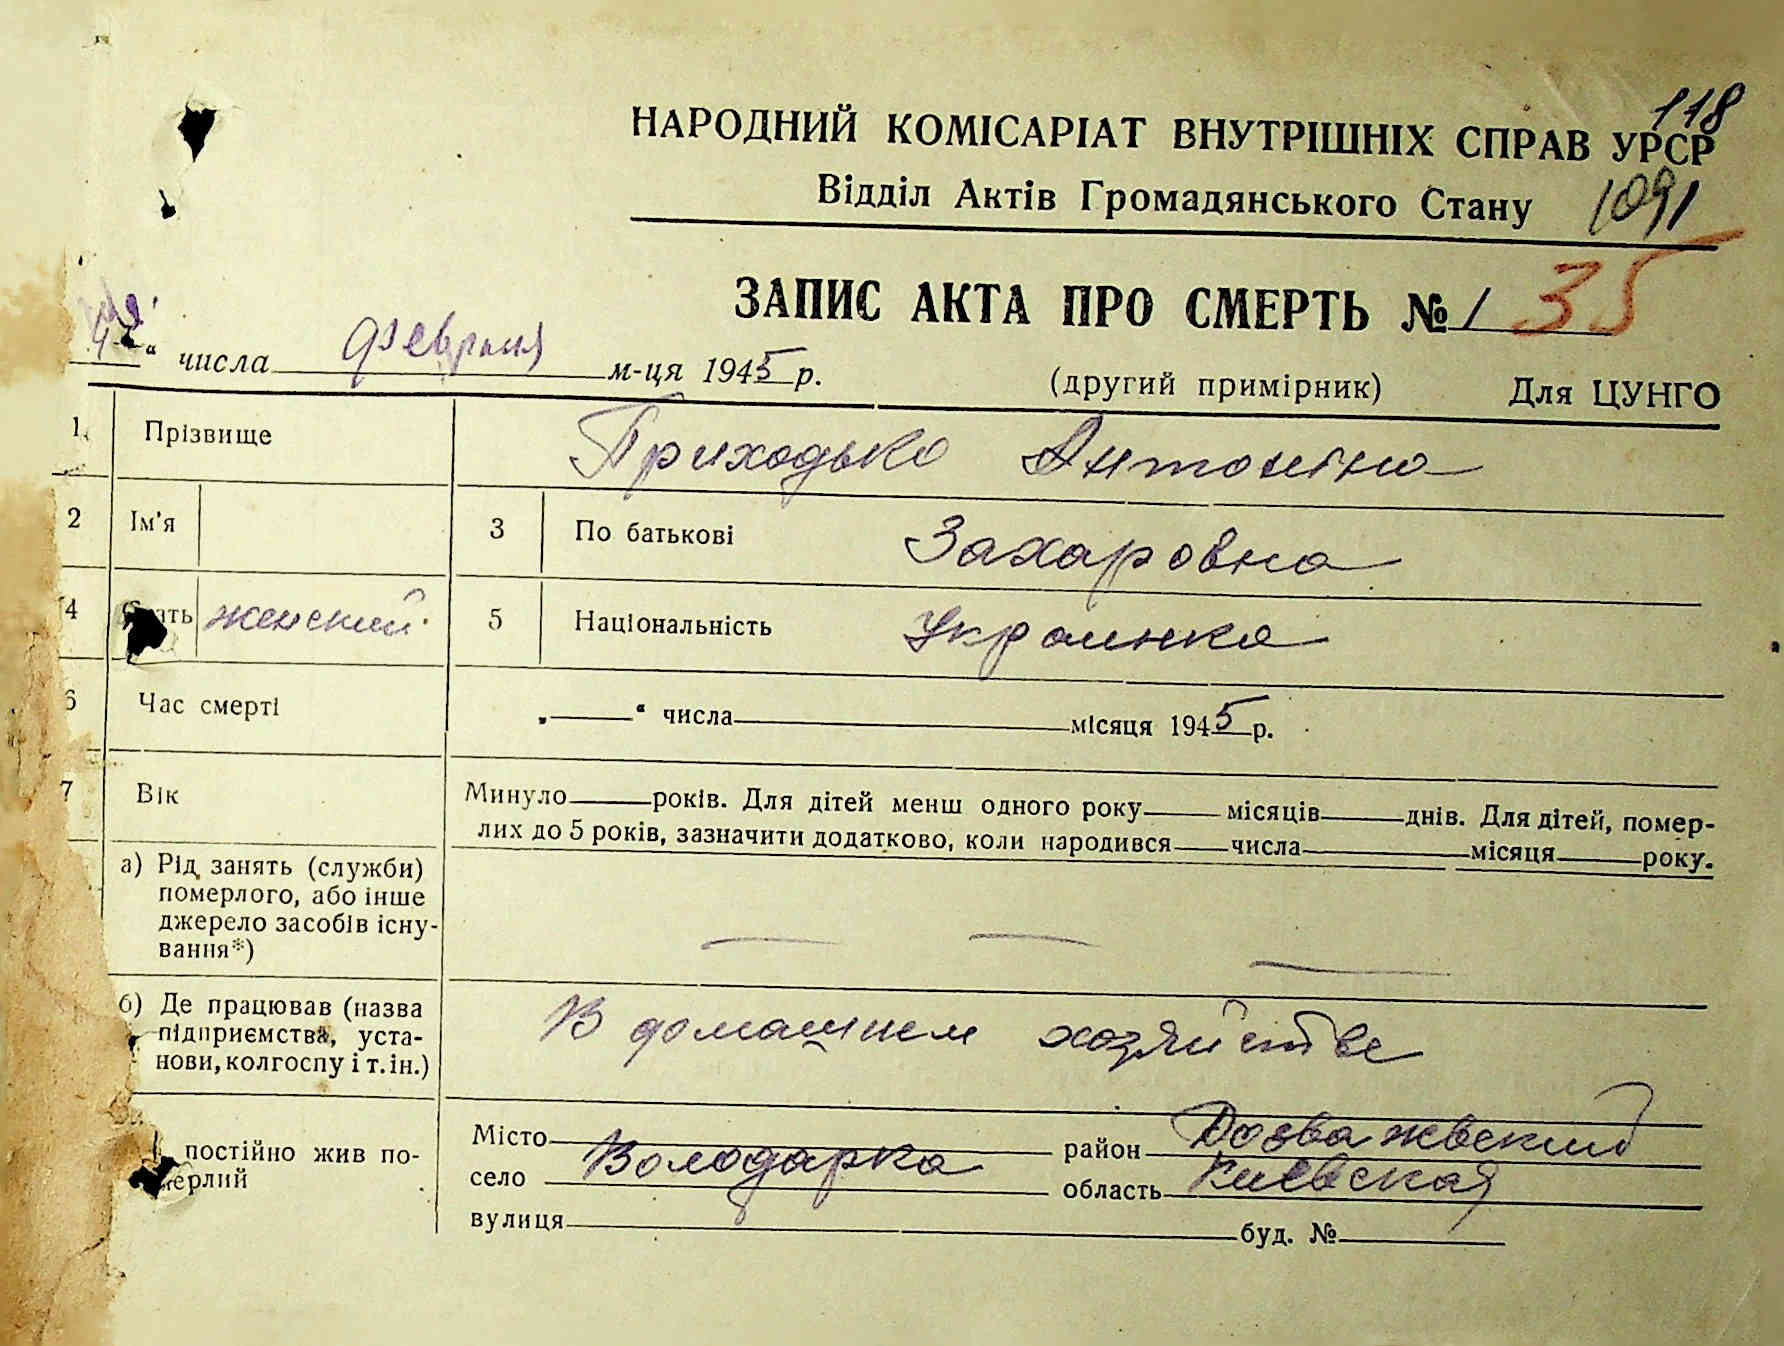 118
НАРОДНИЙ КОМІСАРІАТ ВНУТРІШНІХ СПРАВ УРСР
Відділ Актів Громадянського Стану 1091
ЗАПИС АКТА ПРО СМЕРТЬ № 1 35
4 “ числа февраля м-ця 1945 р.
(другий примірник) Для ЦУНГО
1. Прізвище Приходько Антоніна
2 Ім'я 3 По батькові Захаровна
4 Стать женский 5 Національність Украинка
6 Час смерті „ “ числа місяця 1945 р.
7 Вік Минуло років. Для дітей менш одного року місяців днів. Для дітей, помер-
лих до 5 років, зазначити додатково, коли народився числа місяця року.
а) Рід занять (служби)
померлого, або інше
джерело засобів існу-
вання*)
б) Де працював (назва
підприємства, уста-
нови, колгоспу і т. ін.)
В домашнем хозяйстве
постійно жив по-
мерлий
Місто район
село Володарка область Киевская
вулиця буд. №